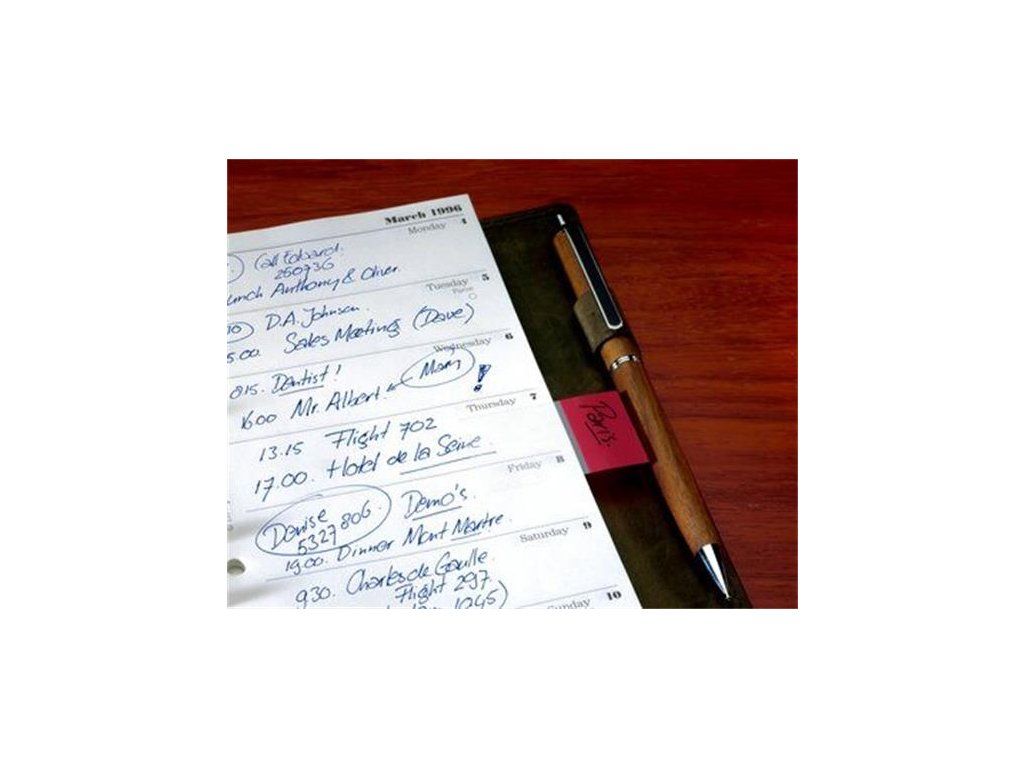 March 1996
Monday 4
Call Edward.
260736
Lunch Anthony & Oliver
Tuesday 5
D.A. Johnson.
5.00. Sales Meeting (Dave)
Wednesday 6
815. Dentist!
1600 Mr. Albert Mary !
Thursday 7
13.15 Flight 702
17.00. Hotel de la Seine.
Friday 8
Denise Demo's.
5327 806.
19.00. Dinner Mont Martre.
Saturday 9
930. Charles de Gaulle.
Flight 297.
1045)
Sunday 10
Paris.